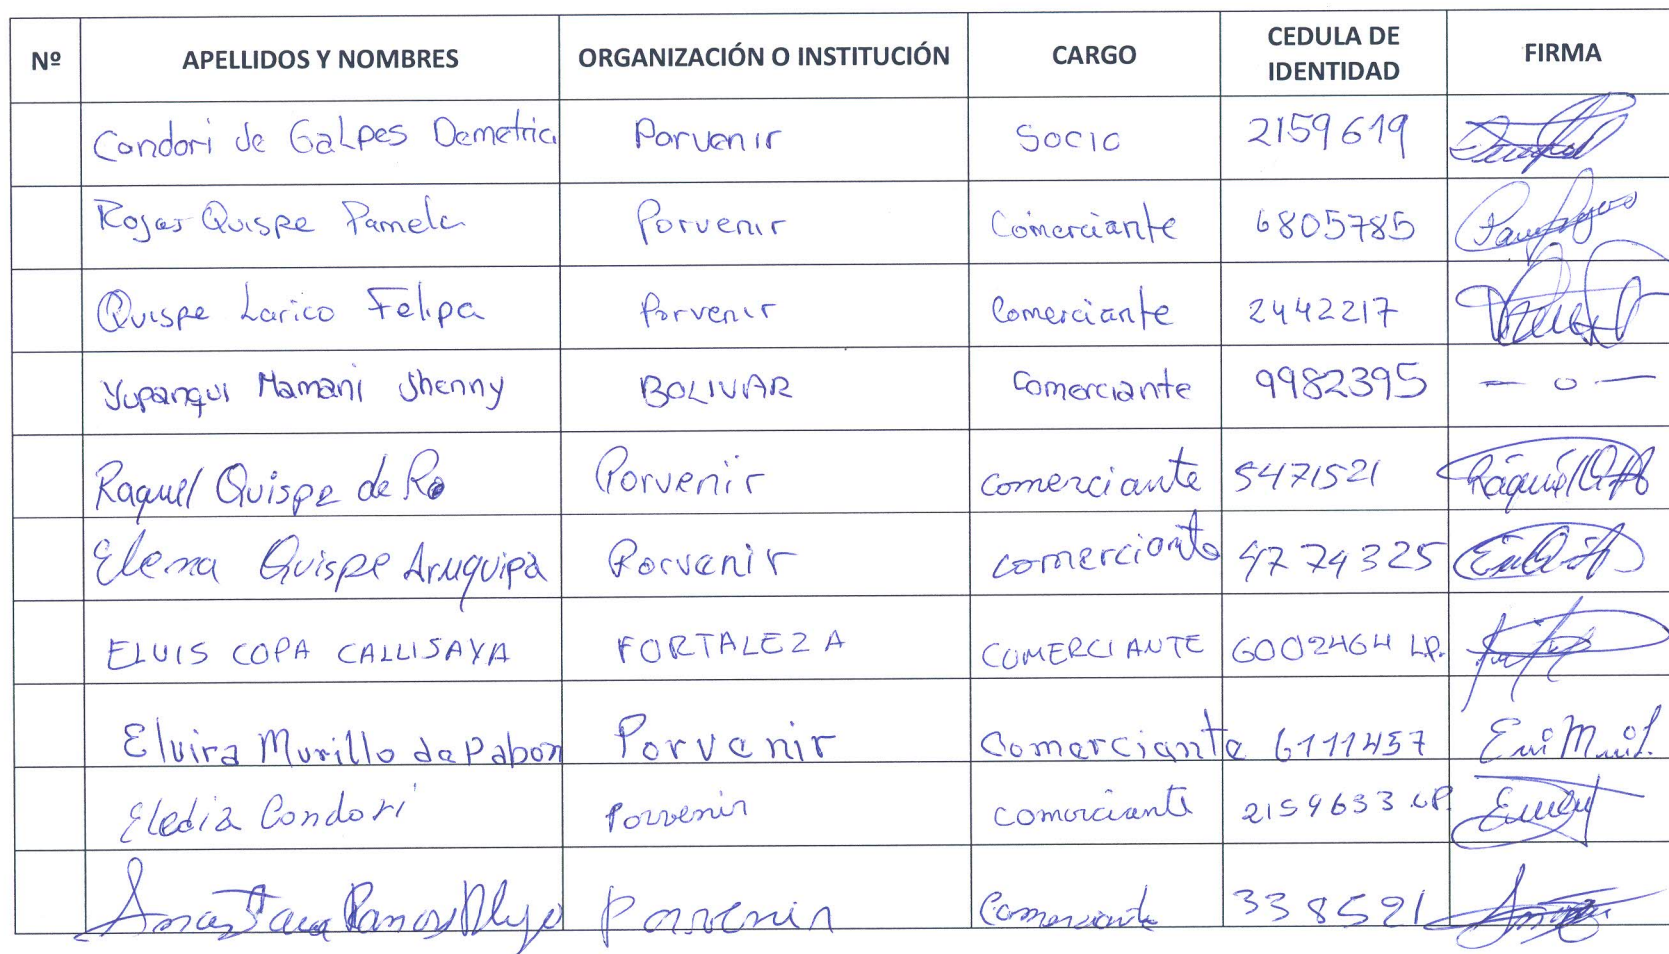 Nº APELLIDOS Y NOMBRES ORGANIZACIÓN O INSTITUCIÓN CARGO CEDULA DE IDENTIDAD FIRMA
Condori de Galpes Demetria Porvenir Socio 2159619
Rojas Quispe Pamela Porvenir Comerciante 6805785
Quispe Larico Felipa Porvenir Comerciante 2442217
Yupanqui Mamani Jhenny BOLIVAR Comerciante 9982395 — o —
Raquel Quispe de Ro Porvenir comerciante 5471521
Elena Quispe Aruquipa Porvenir comerciante 4774325
ELUIS COPA CALLISAYA FORTALEZA COMERCIANTE 6002464 LP.
Elvira Murillo de Pabon Porvenir Comerciante 6111457
Eledia Condori Porvenir comerciante 2159633 LP
Ramos Porvenir Comerciante 338521